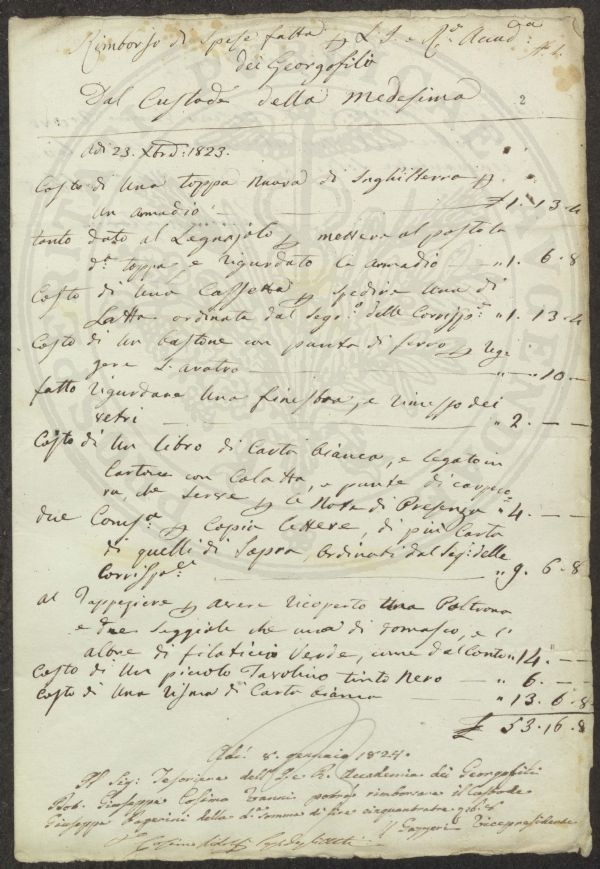 Rimborso di Spese fatte p L'I. e R. Accad.a
N. 1.
dei Georgofili
Dal Custode della Medesima
2
Adi 23. Xbre 1823.
Costo di Una toppa Nuova di Inghilterra p
un armadio £ 1. 13. 4
tanto dato al Legnajolo p mettere al posto la
d.a toppa, e rigurdato le armadio " 1. 6. 8
Costo di Una Cassetta p spedire una di
Latta ordinata dal Segr.o delle Corrisp.e " 1. 13. 4
Costo di un bastone con punta di ferro p reg-
gere L'aratro " " 10 —
fatto rigurdare Una finestra, e rimesso dei
vetri " 2. — —
Costo di Un Libro di Carta bianca, e legato in
Cartone con Culatta, e punte di
ra che serve p le Note di Presenza " 4. — —
due p Copia lettere, di più Carta
di quelli di Sopra, Ordinati dal Seg: delle
Corrisp.e " 9. 6. 8
Al Tappeziere p avere ricoperto Una Poltrona
e due Seggiole che una di domasco, e l'
altre di filaticcio Verde, come dal Conto " 14. — —
Costo di Un piccolo Tavolino tinto Nero — " 6. — —
Costo di Una risma di Carta bianca — " 13. 6. 8
£ 53. 16. 8
Adi. 8. gennaio 1824.
Il Sig: Tesoriere dell'I. e R. Accademia dei Georgofili
Giuseppe Cosimo Vanni potrà rimborsare il Custode
Giuseppe della di somma di lire cinquantatre
Gazzeri Vicepresidente
Cosimo Ridolfi